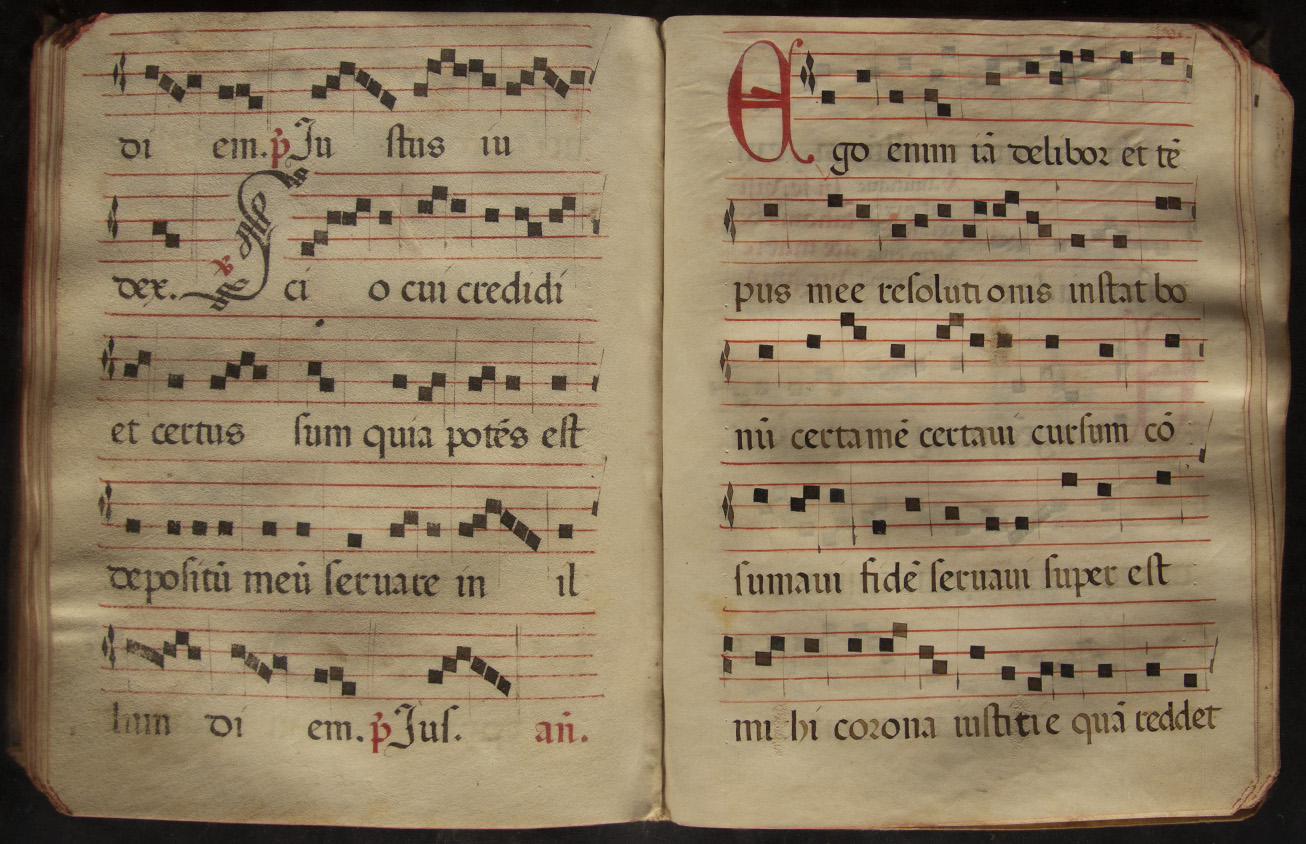 di em. p̄ Ju stus iu
dex. ℣ Sci o cui credidi
et certus sum quia potēs est
depositū meū seruare in il
lum di em. p̄ Jus. añ.
Ego enim iā delibor et tē
pus mee resolutionis instat bo
nū certamē certaui cursum cō
sumaui fidē seruaui super est
mi hi corona iustitie quā reddet